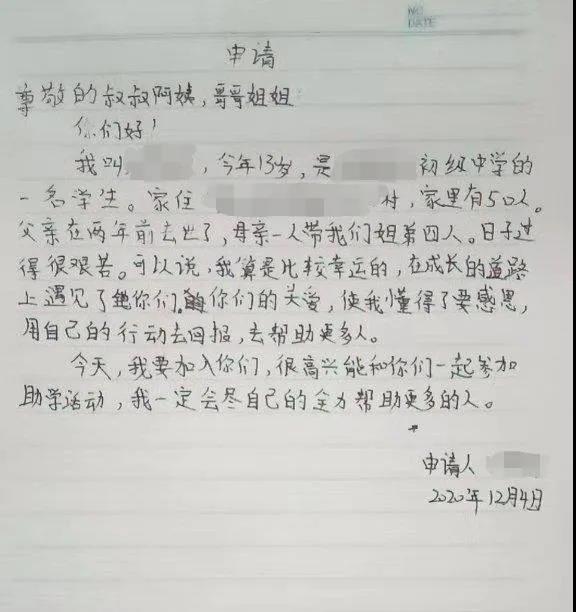 NO
DATE
申请
尊敬的叔叔阿姨，哥哥姐姐
你们好！
我叫，今年13岁，是初级中学的
一名学生。家住村，家里有5口人。
父亲在两年前去世了，母亲一人带我们姐弟四人。日子过
得很艰苦。可以说，我算是比较幸运的，在成长的道路
上遇见了你们，你们的关爱，使我懂得了要感恩，
用自己的行动去回报，去帮助更多人。
今天，我要加入你们，很高兴能和你们一起参加
助学活动，我一定会尽自己的全力帮助更多的人。
申请人
2020年12月4日